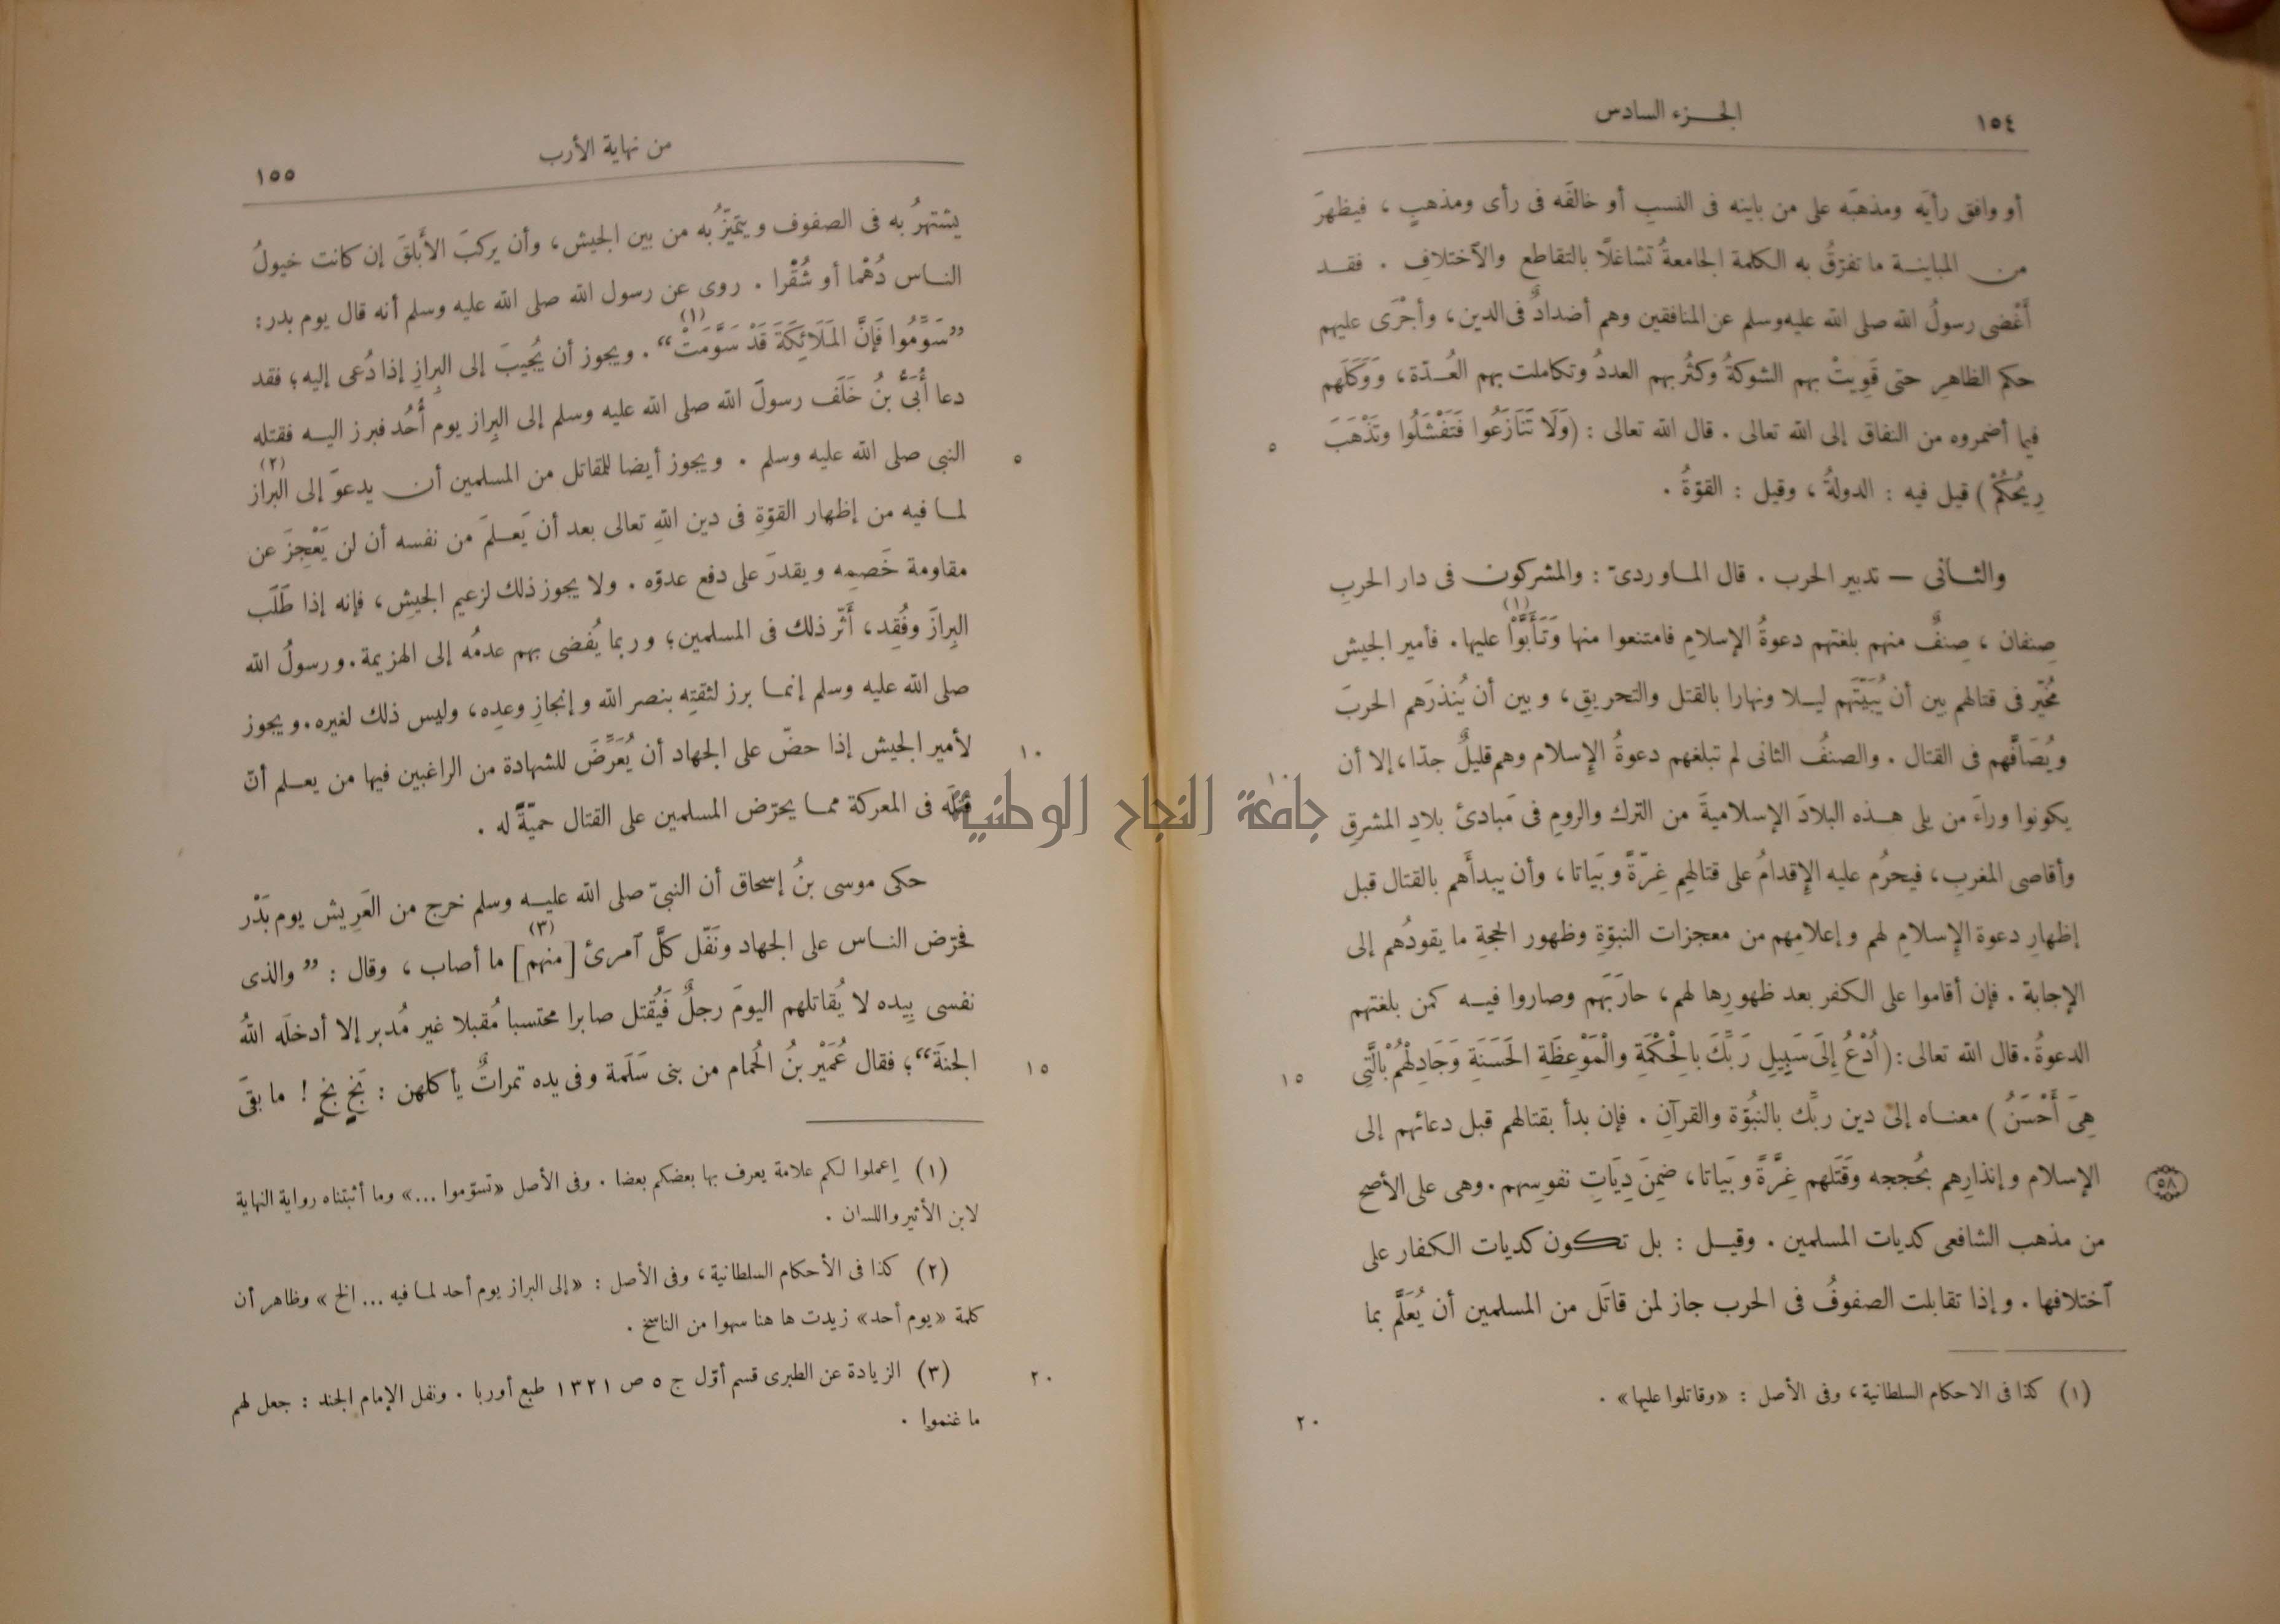 ١٥٤
الجـزء السادس
أو وافق رأيَه ومذهبَه على من باينه فى النسبِ أو خالفَه فى رأى ومذهبٍ ، فيظهرَ
من المباينـة ما تفرّقُ به الكلمة الجامعةُ تشاغلًا بالتقاطع والآختلافِ . فقـد
أَغْضى رسولُ الله صلى الله عليه وسلم عن المنافقين وهم أضدادٌ فى الدين ، وأجْرَى عليهم
حكم الظاهرِ حتى قَوِيتْ بهم الشوكةُ وكثُر بهم العددُ وتكاملت بهم العُـدّة ، وَوَكَلَهم
فيما أضمروه من النفاق إلى الله تعالى . قال الله تعالى : ( وَلَا تَنَازَعُوا فَتَفْشَلُوا وتَذْهَبَ
٥
رِيحُكُمْ ) قيل فيه : الدولةُ ، وقيل : القوّةُ .
والثـانى — تدبير الحرب . قال المـاوردىّ : والمشركون فى دار الحربِ
صِنفان ، صِنفٌ منهم بلغتهم دعوةُ الإسلامِ فامتنعوا منها وَتَأَبَّوْا (١) عليها . فأمير الجيش
مُخيّر فى قتالهم بين أن يُبَيّتَهم ليـلا ونهارا بالقتل والتحريقِ ، وبين أن يُنذرَهم الحربَ
ويُصَافَّهم فى القتال . والصنفُ الثانى لم تبلغهم دعوةُ الإسلام وهم قليلٌ جدّا ، إلا أن
١٠
يكونوا وراءَ من يلى هـذه البلادَ الإسلاميةَ من الترك والرومِ فى مَبادئ بلادِ المشرقِ
وأقاصى المغربِ ، فيحرُم عليه الإقدامُ على قتالهِم غِرّةً وبَياتا ، وأن يبدأَهم بالقتال قبل
إظهارِ دعوة الإسلامِ لهم وإعلامِهم من معجزات النبوّةِ وظهور الحجةِ ما يقودُهم إلى
الإجابة . فإن أقاموا على الكفر بعد ظهورِها لهم ، حارَبَهم وصاروا فيـه كمن بلغتهم
الدعوةُ . قال الله تعالى : ( اُدْعُ إِلَى سَبِيلِ رَبِّكَ بالحِكْمَةِ والْمَوْعِظَةِ الحَسَنَةِ وَجَادِلْهُمْ بِالَّتِى
١٥
هِىَ أَحْسَنُ ) معنـاه إلى دين ربِّك بالنبُوّة والقرآنِ . فإن بدأ بقتالهم قبل دعائهم إلى
الإسلام وإنذارِهم بحُججه وقَتَلهم غِرَّةً وبَياتا ، ضمِنَ دِيَاتِ نفوسِهم . وهى على الأصحِ
٥٨
من مذهب الشافعى كديات المسلمين . وقيـل : بل تكون كديات الكفار على
آختلافها . وإذا تقابلت الصفوفُ فى الحرب جاز لمن قاتَل من المسلمين أن يُعَلَّم بما
(١) كذا فى الاحكام السلطانية ، وفى الأصل : «وقاتلوا عليها» .
٢٠
من نهاية الأرب
١٥٥
يشتهرُ به فى الصفوف ويتميّزُ به من بين الجيش ، وأن يركبَ الأَبلقَ إن كانت خيولُ
النـاس دُهْما أو شُقْرا . روى عن رسول الله صلى الله عليه وسلم أنه قال يوم بدر :
”سَوِّمُوا فَإنَّ المَلَائِكَةَ قَدْ سَوَّمَتْ (١)“ . ويجوز أن يُجيبَ إلى البِرازِ إذا دُعى إليه ؛ فقد
دعا أُبَىُّ بنُ خَلَف رسولَ الله صلى الله عليه وسلم إلى البِراز يوم أُحُد فبرز اليـه فقتله
النبى صلى الله عليه وسلم . ويجوز أيضا للمقاتل من المسلمين أن يدعوَ إلى البراز (٢)
٥
لمـا فيه من إظهار القوّةِ فى دين اللهِ تعالى بعد أن يَعـلمَ من نفسه أن لن يَعْجِزَ عن
مقاومة خَصمِه ويقدرَ على دفع عدوّه . ولا يجوز ذلك لزعيم الجيشِ ، فإنه إذا طَلَب
البِرازَ وفُقِد ، أَثّر ذلك فى المسلمين ؛ وربما يُفضى بهم عدمُه إلى الهزيمة . ورسولُ الله
صلى الله عليه وسلم إنمـا برز لثقتِه بنصر الله وإنجازِ وعدِه ، وليس ذلك لغيره . ويجوز
لأمير الجيش إذا حضّ على الجهاد أن يُعَرِّضَ للشهادة من الراغبين فيها من يعـلم أنّ
١٠
قتلَه فى المعركة ممـا يحرّض المسلمين على القتال حميّةً له .
حكى موسى بنُ إسحاق أن النبىّ صلى الله عليـه وسلم خرج من العَرِيش يوم بَدْر
فحرّض النـاس على الجهاد ونَفّل كلَّ آمرئ [منهم] (٣) ما أصاب ، وقال : ”والذى
نفسى بِيده لا يُقاتلهم اليومَ رجلٌ فَيُقتل صابرا محتسبا مُقبلا غير مُدبر إلا أدخلَه اللهُ
الجنةَ“ ؛ فقال عُمَيْر بنُ الحُمام من بنى سَلَمة وفى يده تمراتٌ يأكلهن : بَخٍ بَخٍ ! ما بقىَ
١٥
(١) اِعملوا لكم علامة يعرف بها بعضكم بعضا . وفى الأصل «تسوّموا ...» وما أثبتناه رواية النهاية
لابن الأثير واللسان .
(٢) كذا فى الأحكام السلطانية ، وفى الأصل : «إلى البراز يوم أحد لمـا فيه ... الخ» وظاهر أن
كلمة «يوم أحد» زيدت ها هنا سهوا من الناسخ .
(٣) الزيادة عن الطبرى قسم أوّل ج ٥ ص ١٣٢١ طبع أوربا . ونفل الإمام الجند : جعل لهم
٢٠
ما غنموا .
جامعة النجاح الوطنية